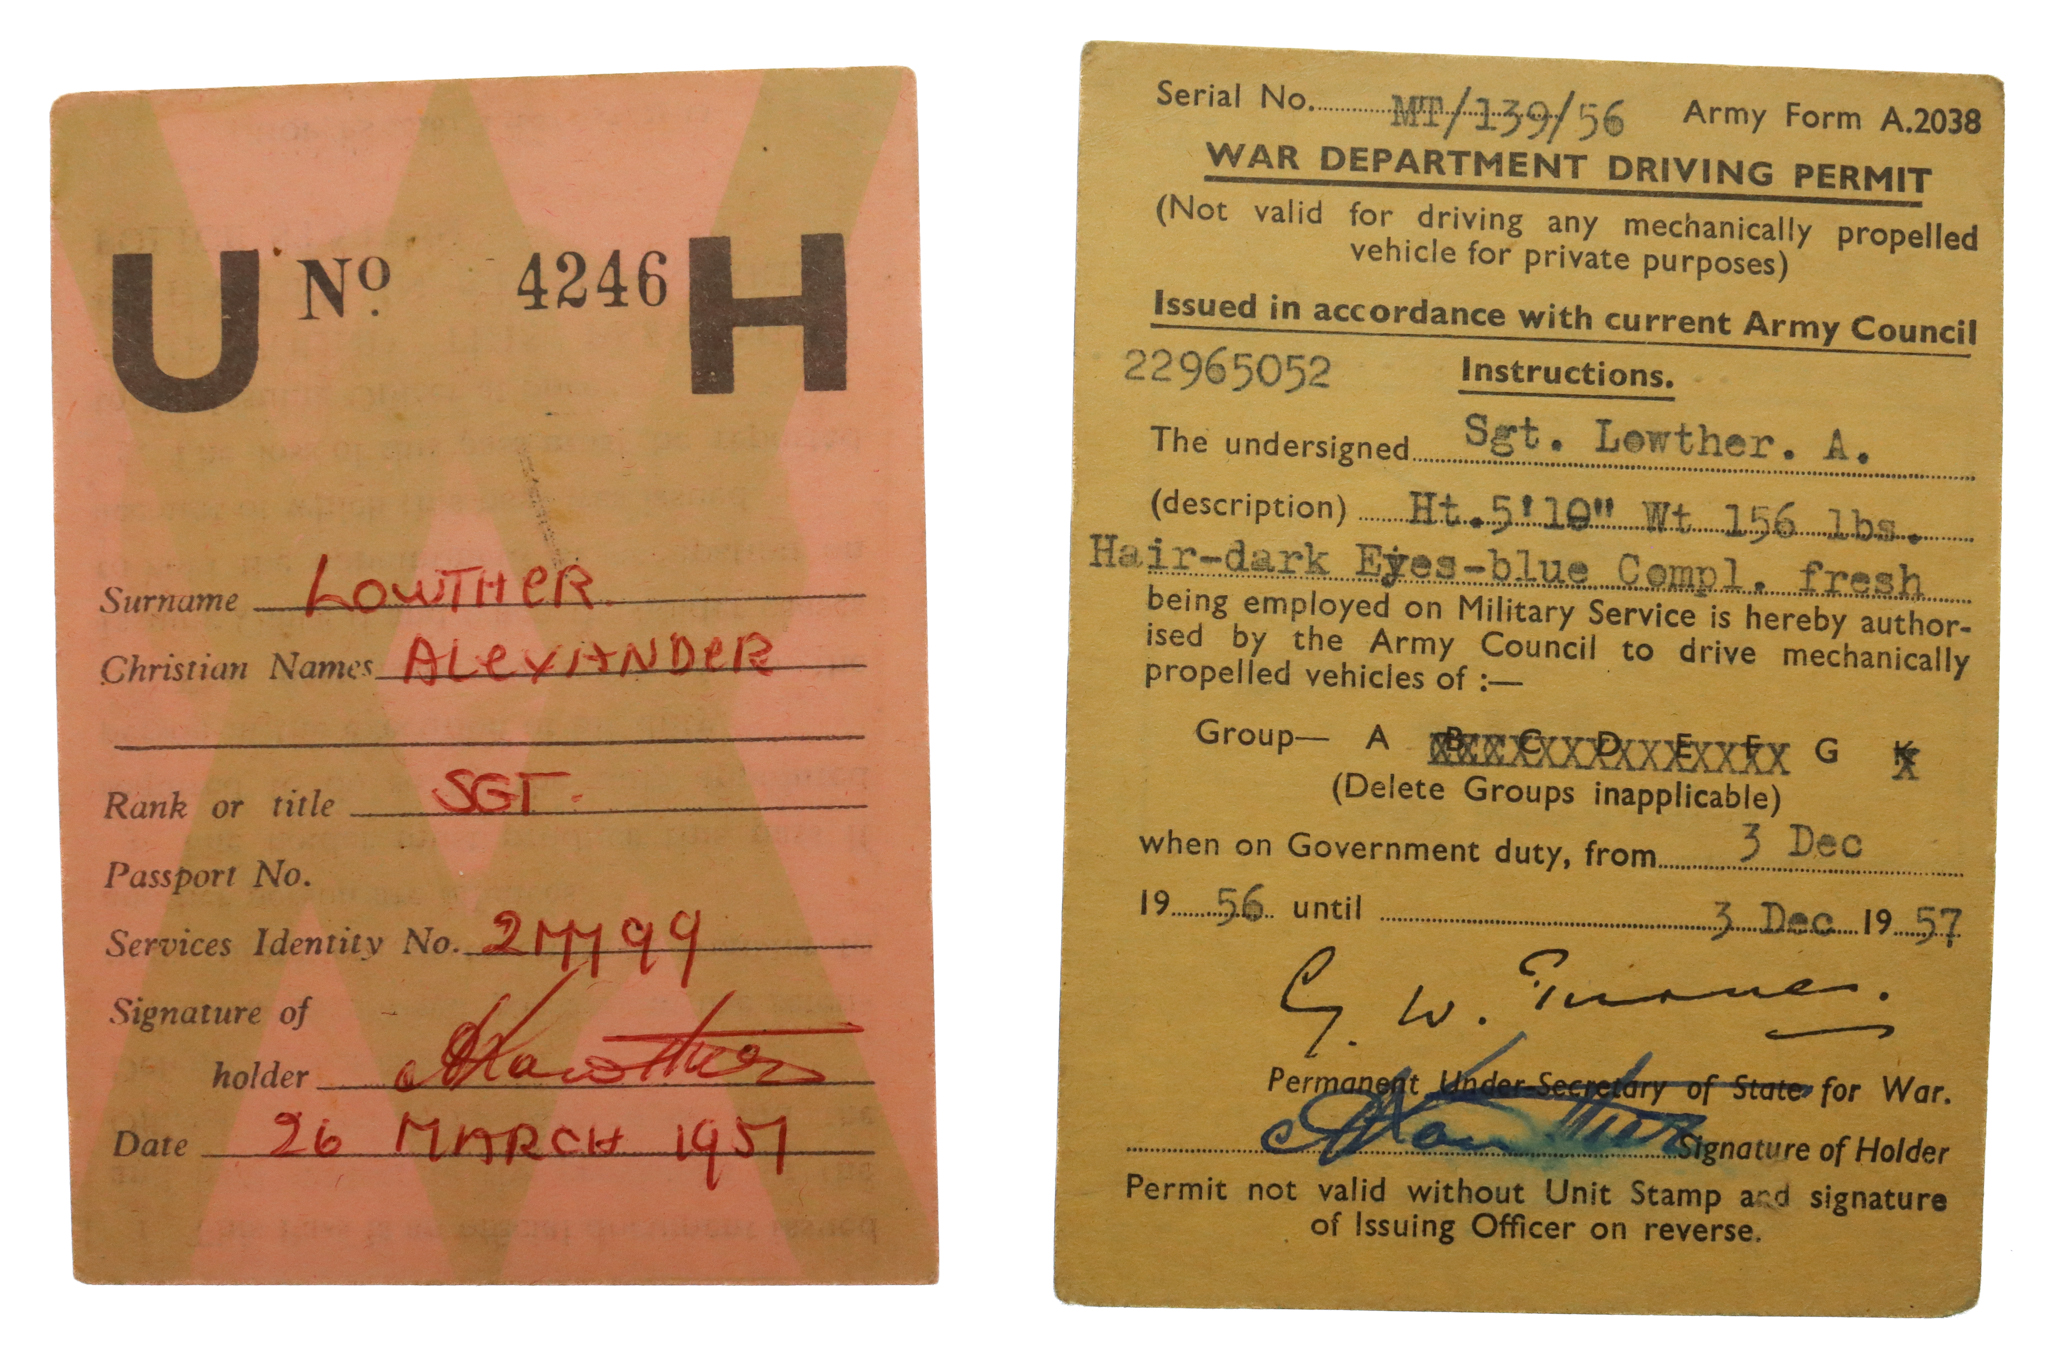 U No. 4246 H
Surname LOWTHER.
Christian Names ALEXANDER
Rank or title SGT.
Passport No.
Services Identity No. 277799
Signature of
holder ALowther
Date 26 MARCH 1957
Serial No. MT/139/56 Army Form A.2038
WAR DEPARTMENT DRIVING PERMIT
(Not valid for driving any mechanically propelled
vehicle for private purposes)
Issued in accordance with current Army Council
22965052 Instructions.
The undersigned Sgt. Lowther. A.
(description) Ht.5'10" Wt 156 lbs.
Hair-dark Eyes-blue Compl. fresh
being employed on Military Service is hereby author-
ised by the Army Council to drive mechanically
propelled vehicles of :—
Group— A B C D E F G K
(Delete Groups inapplicable)
when on Government duty, from 3 Dec
19 56 until 3 Dec 19 57
G. W. Turner.
Permanent Under-Secretary of State for War.
ALowther Signature of Holder
Permit not valid without Unit Stamp and signature
of Issuing Officer on reverse.